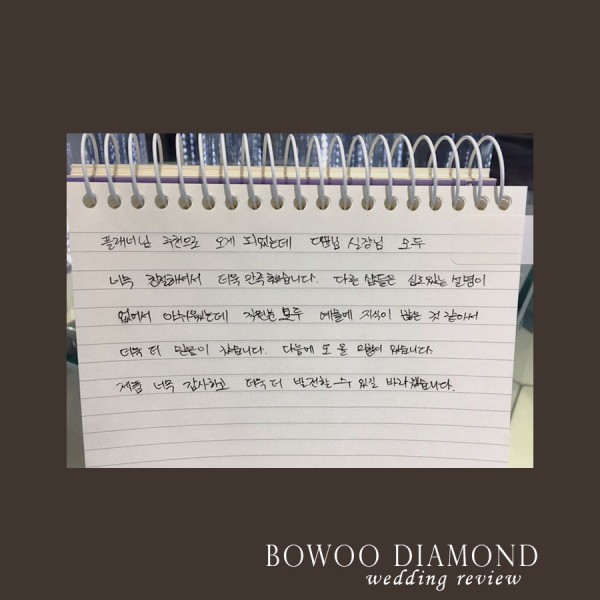 플래너님 추천으로 오게 되었는데 대표님 실장님 모두
너무 친절하셔서 더욱 만족했습니다. 다른 샵들은 심도있는 설명이
없어서 아쉬웠는데 직원분 모두 예물에 지식이 많은 것 같아서
더욱 더 믿음이 갔습니다. 다음에 또 올 있습니다.
제품 너무 감사하고 더욱 더 발전할 수 있길 바라겠습니다.
BOWOO DIAMOND
wedding review